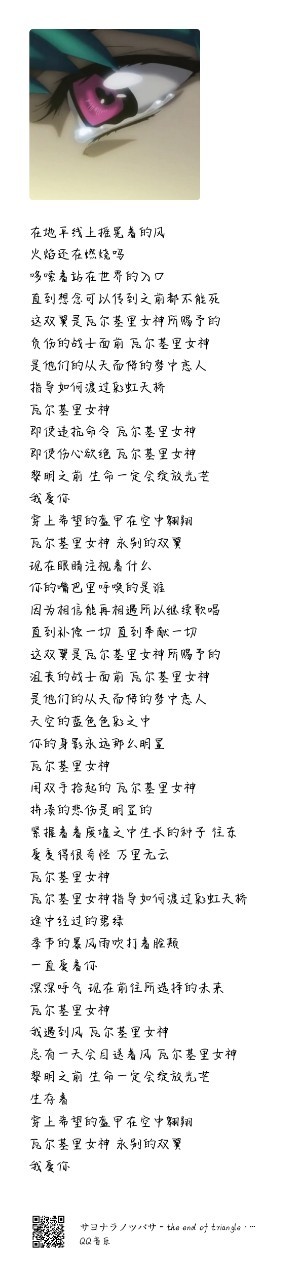 在地平线上摇晃着的风
火焰还在燃烧吗
哆嗦着站在世界的入口
直到想念可以传到之前都不能死
这双翼是瓦尔基里女神所赐予的
负伤的战士面前 瓦尔基里女神
是他们的从天而降的梦中恋人
指导如何渡过彩虹天桥
瓦尔基里女神
即使违抗命令 瓦尔基里女神
即使伤心欲绝 瓦尔基里女神
黎明之前 生命一定会绽放光芒
我爱你
穿上希望的盔甲在空中翱翔
瓦尔基里女神 永别的双翼
现在眼睛注视着什么
你的嘴巴里呼唤的是谁
因为相信能再相遇所以继续歌唱
直到补偿一切 直到奉献一切
这双翼是瓦尔基里女神所赐予的
沮丧的战士面前 瓦尔基里女神
是他们的从天而降的梦中恋人
天空的蓝色色彩之中
你的身影永远那么明显
瓦尔基里女神
用双手拾起的 瓦尔基里女神
拼凑的悲伤是明显的
紧握着着废墟之中生长的种子 往东
爱变得很奇怪 万里无云
瓦尔基里女神
瓦尔基里女神指导如何渡过彩虹天桥
途中经过的碧绿
季节的暴风雨吹打着脸颊
一直爱着你
深深呼气 现在前往所选择的未来
瓦尔基里女神
我遇到风 瓦尔基里女神
总有一天会目送着风 瓦尔基里女神
黎明之前 生命一定会绽放光芒
生存着
穿上希望的盔甲在空中翱翔
瓦尔基里女神 永别的双翼
我爱你
サヨナラノツバサ - the end of triangle ·…
QQ音乐